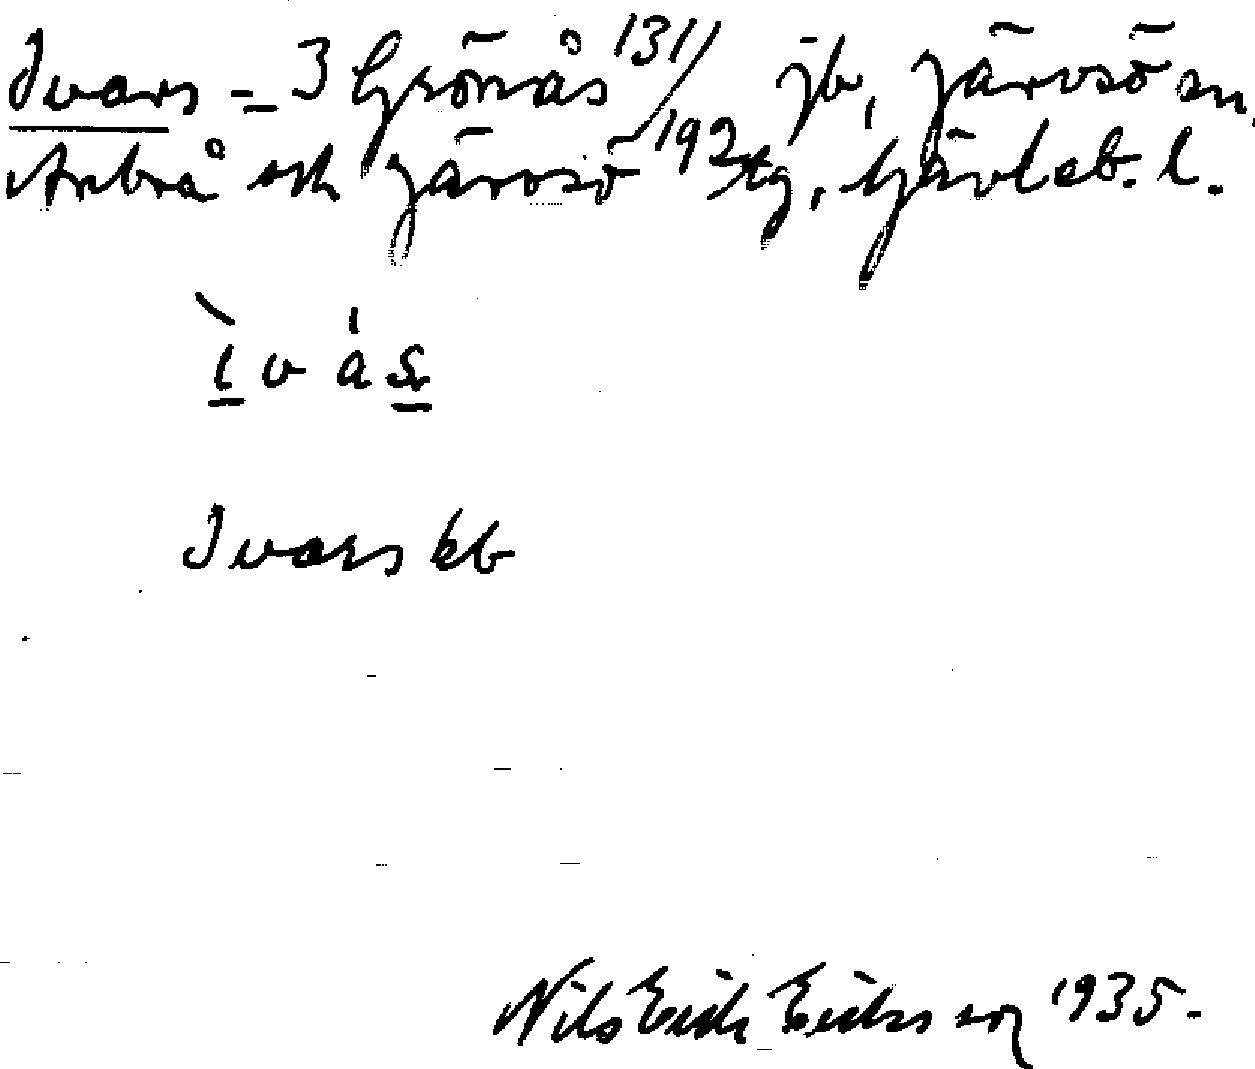 Ivars = 3 Grönås 131/192 jb, Järvsö sn,
Arbrå och Järvsö tg, Gävleb. l.
ì v á s
Ivars kb
Nils Erik Eriksson 1935.